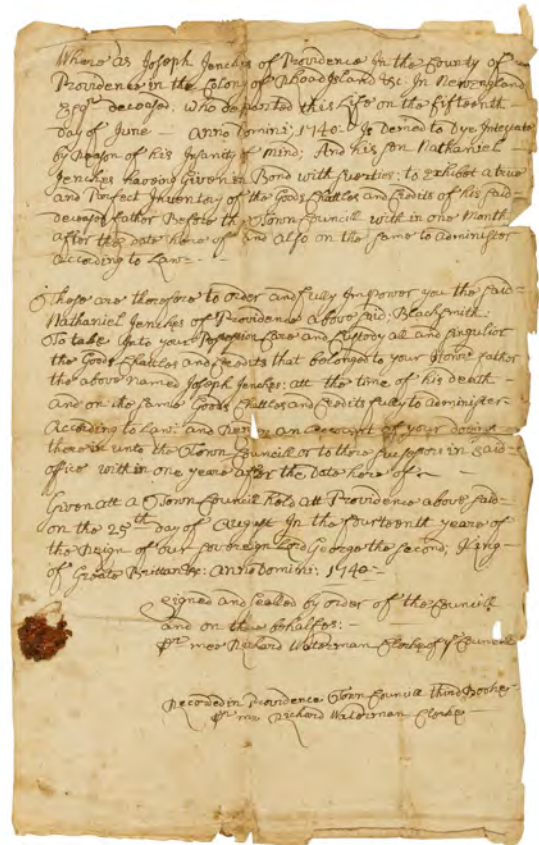 Where as Joseph Jenckes of Providence In the County of
Providence in the Colony of Rhoad Island &c. In Newengland
Esqr. deceased. Who departed this Life on the fifteenth
day of June — Anno Domini; 1740. Is Demed to Dye Intestate
by Reason of his Insanity of mind; And his son Nathaniel —
Jenckes haveing Given Bond with suerties; to exhibet a true
and Perfect Inventory of the Goods Chattles and Credits of his said
deceased father Before the Town Councill with in one Month
after the date here of and also on the same to Administer
According to Law —
These are therefore to order and fully Impower you the said
Nathaniel Jenckes of Providence above said; Blacksmith:
To take Into your Possession Care and Custody all and singulior
the Goods Chattles and Credits that belonges to your Honrd father
the above named Joseph Jenckes: att the time of his death —
and on the same Goods Chattles and Credits fully to Administer —
According to Law: and Render an account of your doeings
there in unto the Town Councill or to there successors in said
office with in one yeare after the Date here of —
Given att a Town Councill held att Providence above said —
on the 25th day of August In the fourteenth yeare of
the Reign of our Sovereign Lord George the second; King —
of Greate Brittan &c: Anno Domini: 1740 —
Signed and sealled by order of the Councill
and on there behalfes: —
Pr mee Richard Waterman Clerke of ye Councill
Recorded in Providence Town Councill third Booke
Pr me Richard Waterman Clerke —